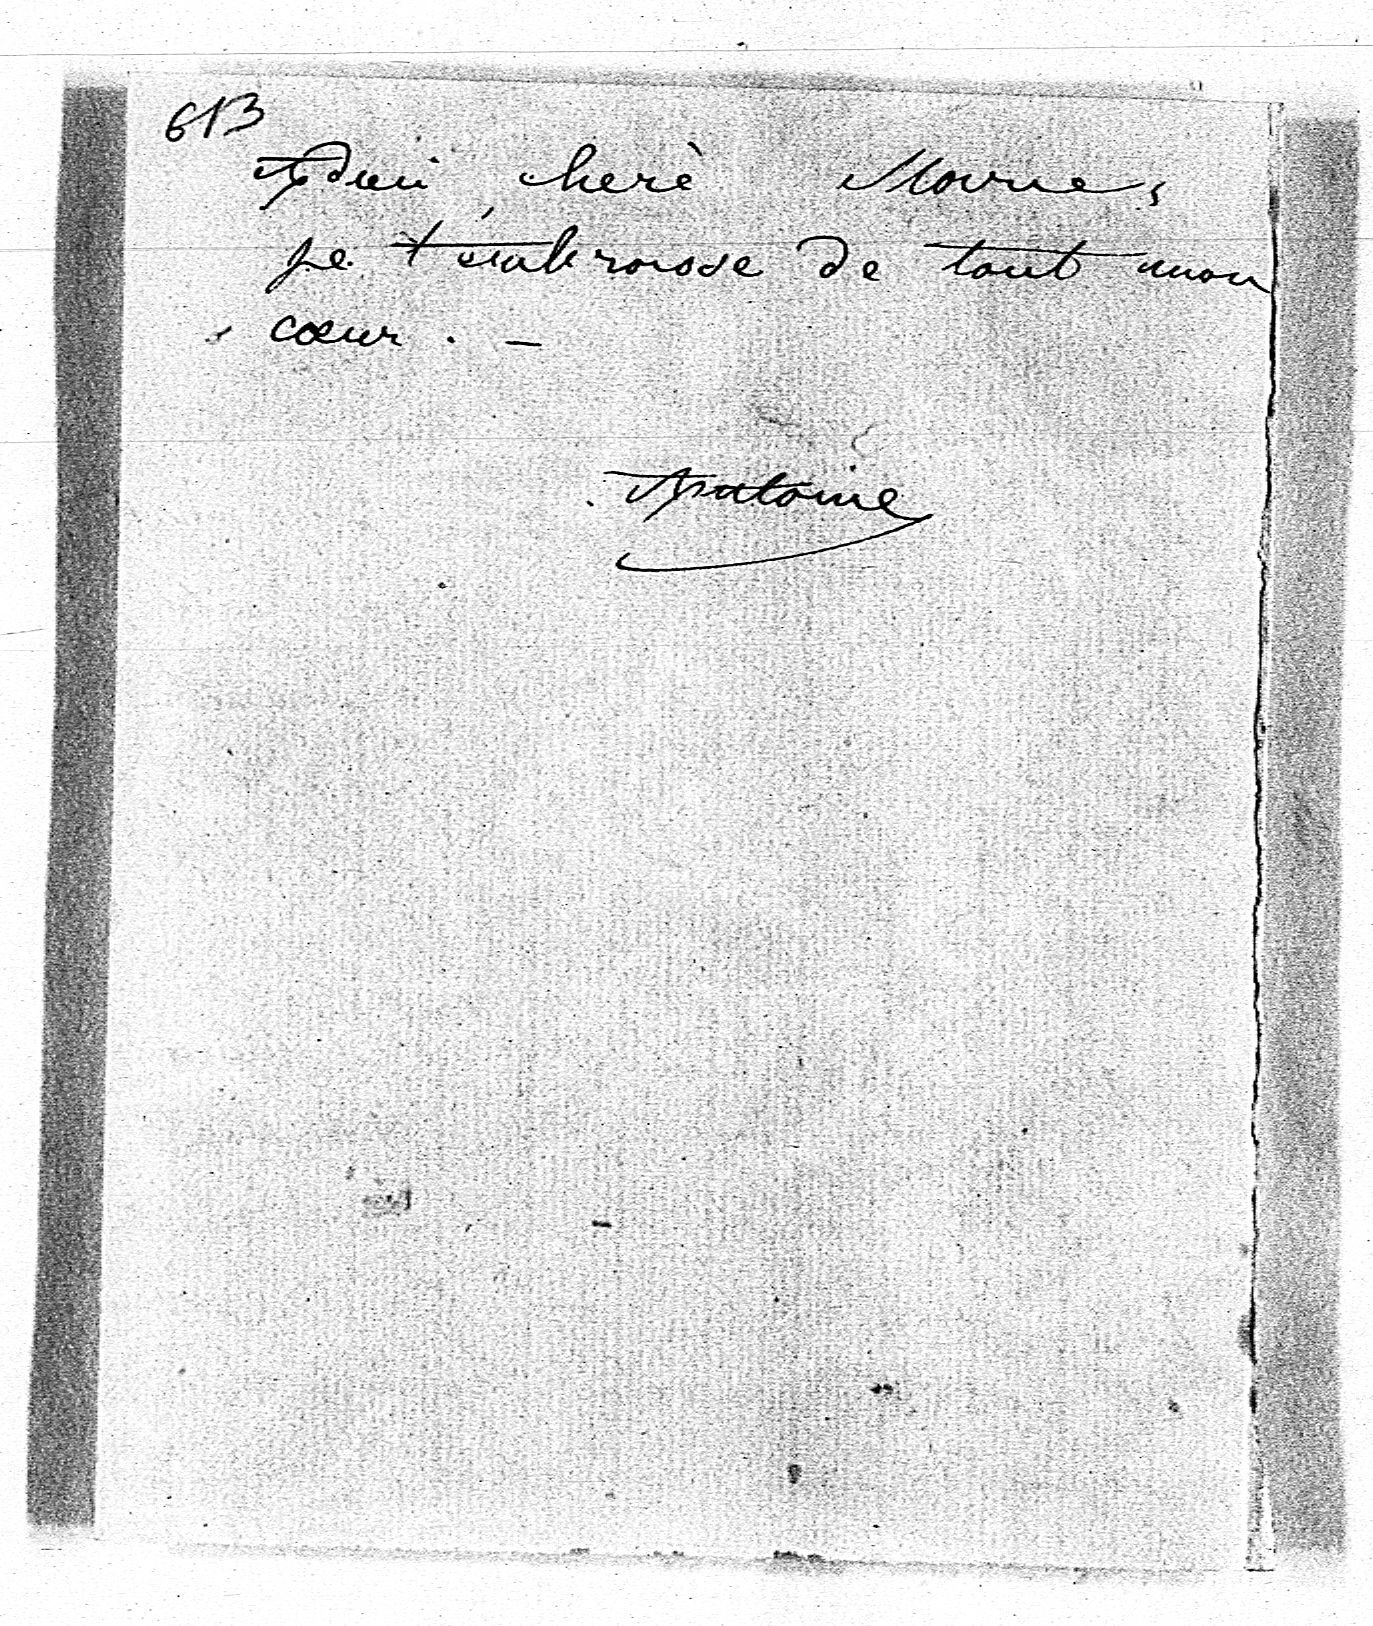 613
Adieu cherè Marie,
je t'embrasse de tout mon
cœur. -
Antoine